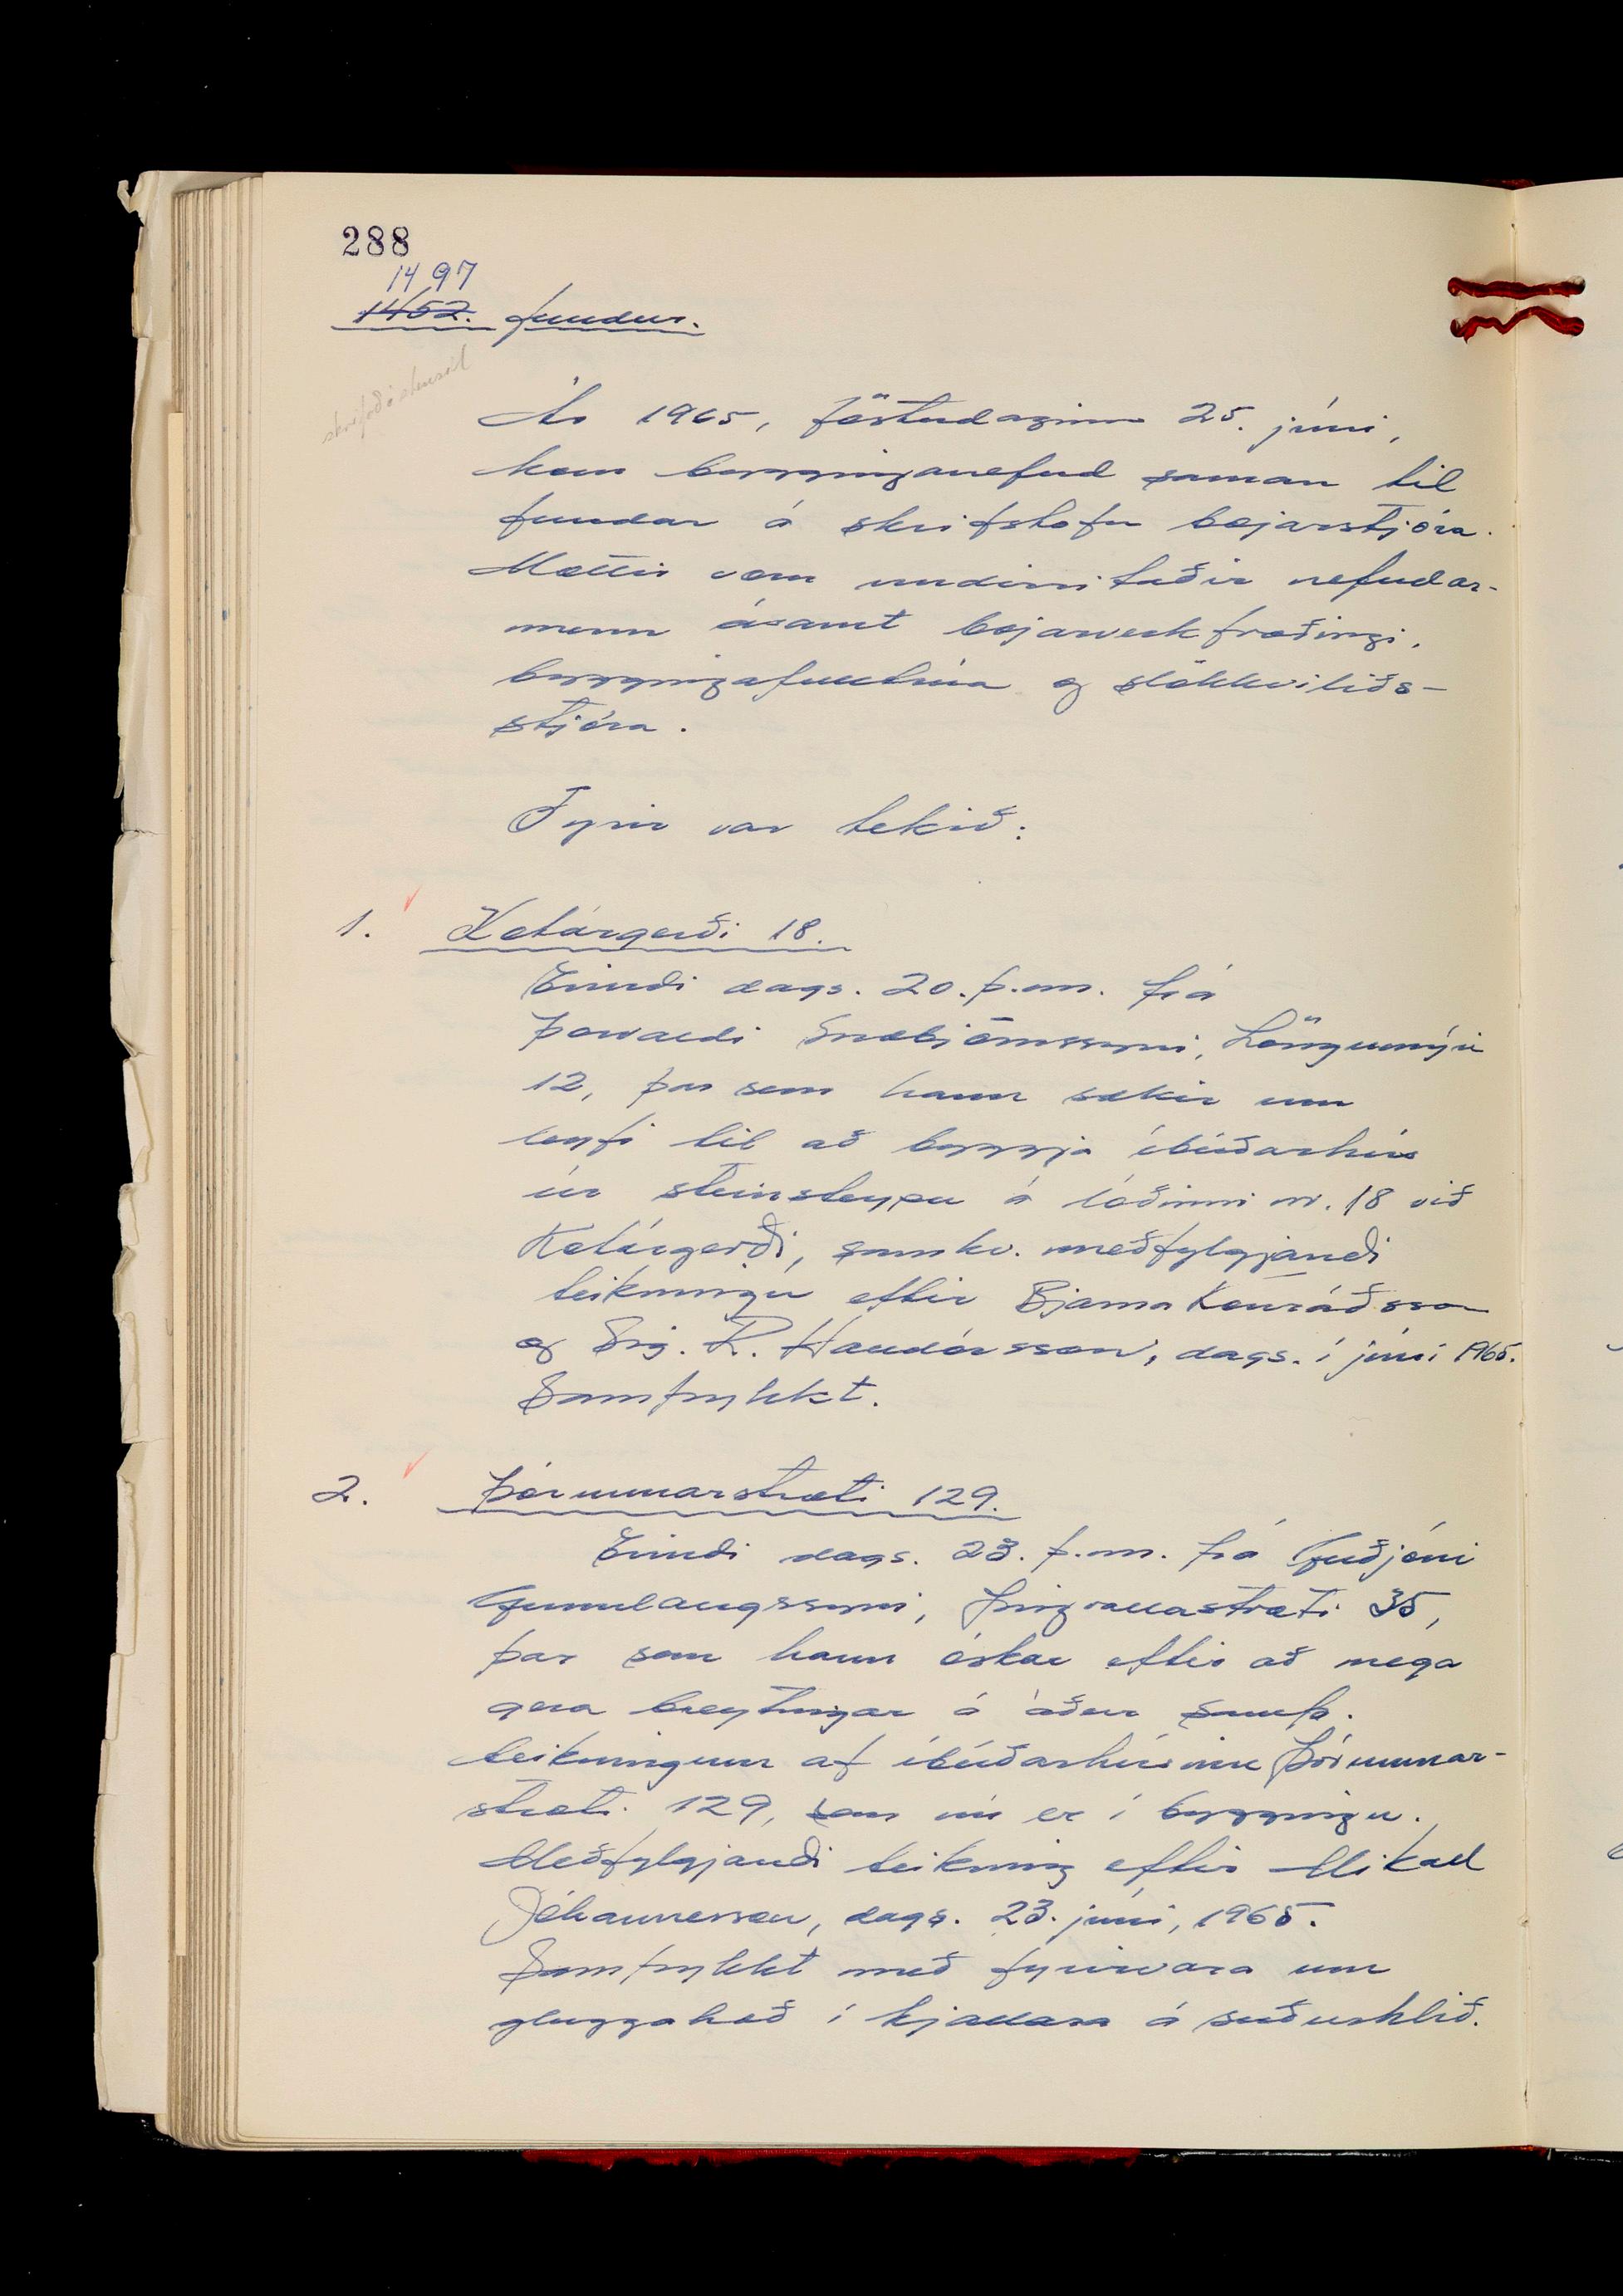 288
1497
1452. fundur.
skrifað á stensil
Ár 1965, föstudaginn 25. júní,
kom bygginganefnd saman til
fundar á skrifstofu bæjarstjóra.
Mættir voru undirritaðir nefndar-
menn ásamt bæjarverkfræðingi,
byggingafulltrúa og slökkviliðs-
stjóra.
Fyrir var tekið:
1. Kotárgerði 18.
Erindi dags. 20. þ.m. frá
Þorvaldi Snæbjörnssyni, Löngumýri
12, þar sem hann sækir um
leyfi til að byggja íbúðarhús
úr steinsteypu á lóðinni nr. 18 við
Kotárgerði, samkv. meðfylgjandi
teikningu eftir Bjarna Konráðsson
og Sig. R. Halldórsson, dags. í júní 1965.
Samþykkt.
2. Þórunnarstræti 129.
Erindi dags. 23. þ.m. frá Guðjóni
Gunnlaugssyni, Þingvallastræti 35,
þar sem hann óskar eftir að mega
gera breytingar á áður samþ.
teikningum af íbúðarhúsinu Þórunnar-
stræti 129, sem nú er í byggingu.
Meðfylgjandi teikning eftir Mikael
Jóhannesson, dags. 23. júní, 1965.
Samþykkt með fyrirvara um
gluggahæð í kjallara á suðurhlið.